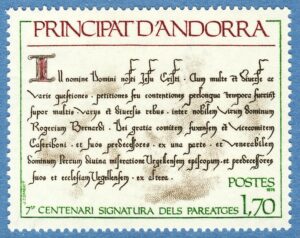 PRINCIPAT D'ANDORRA
In nomine Domini nostri Jesu Cristi. Cum multe et diverse ac
varie questiones, petitiones seu contentiones prolongua tempora fuerint
super multis, variis et diversis rebus, inter nobilem virum dominum
Rogerium Bernardi, Dei gratia comitem Fuxensem et vicecomitem
Castriboni, et suos predecessores, ex una parte, et venerabilem
dominum Petrum divina miseratione Urgellensem episcopum, et predecessores
suos et ecclesiam Urgellensem, ex altera.
POSTES
1978
7è CENTENARI SIGNATURA DELS PAREATGES
1,70